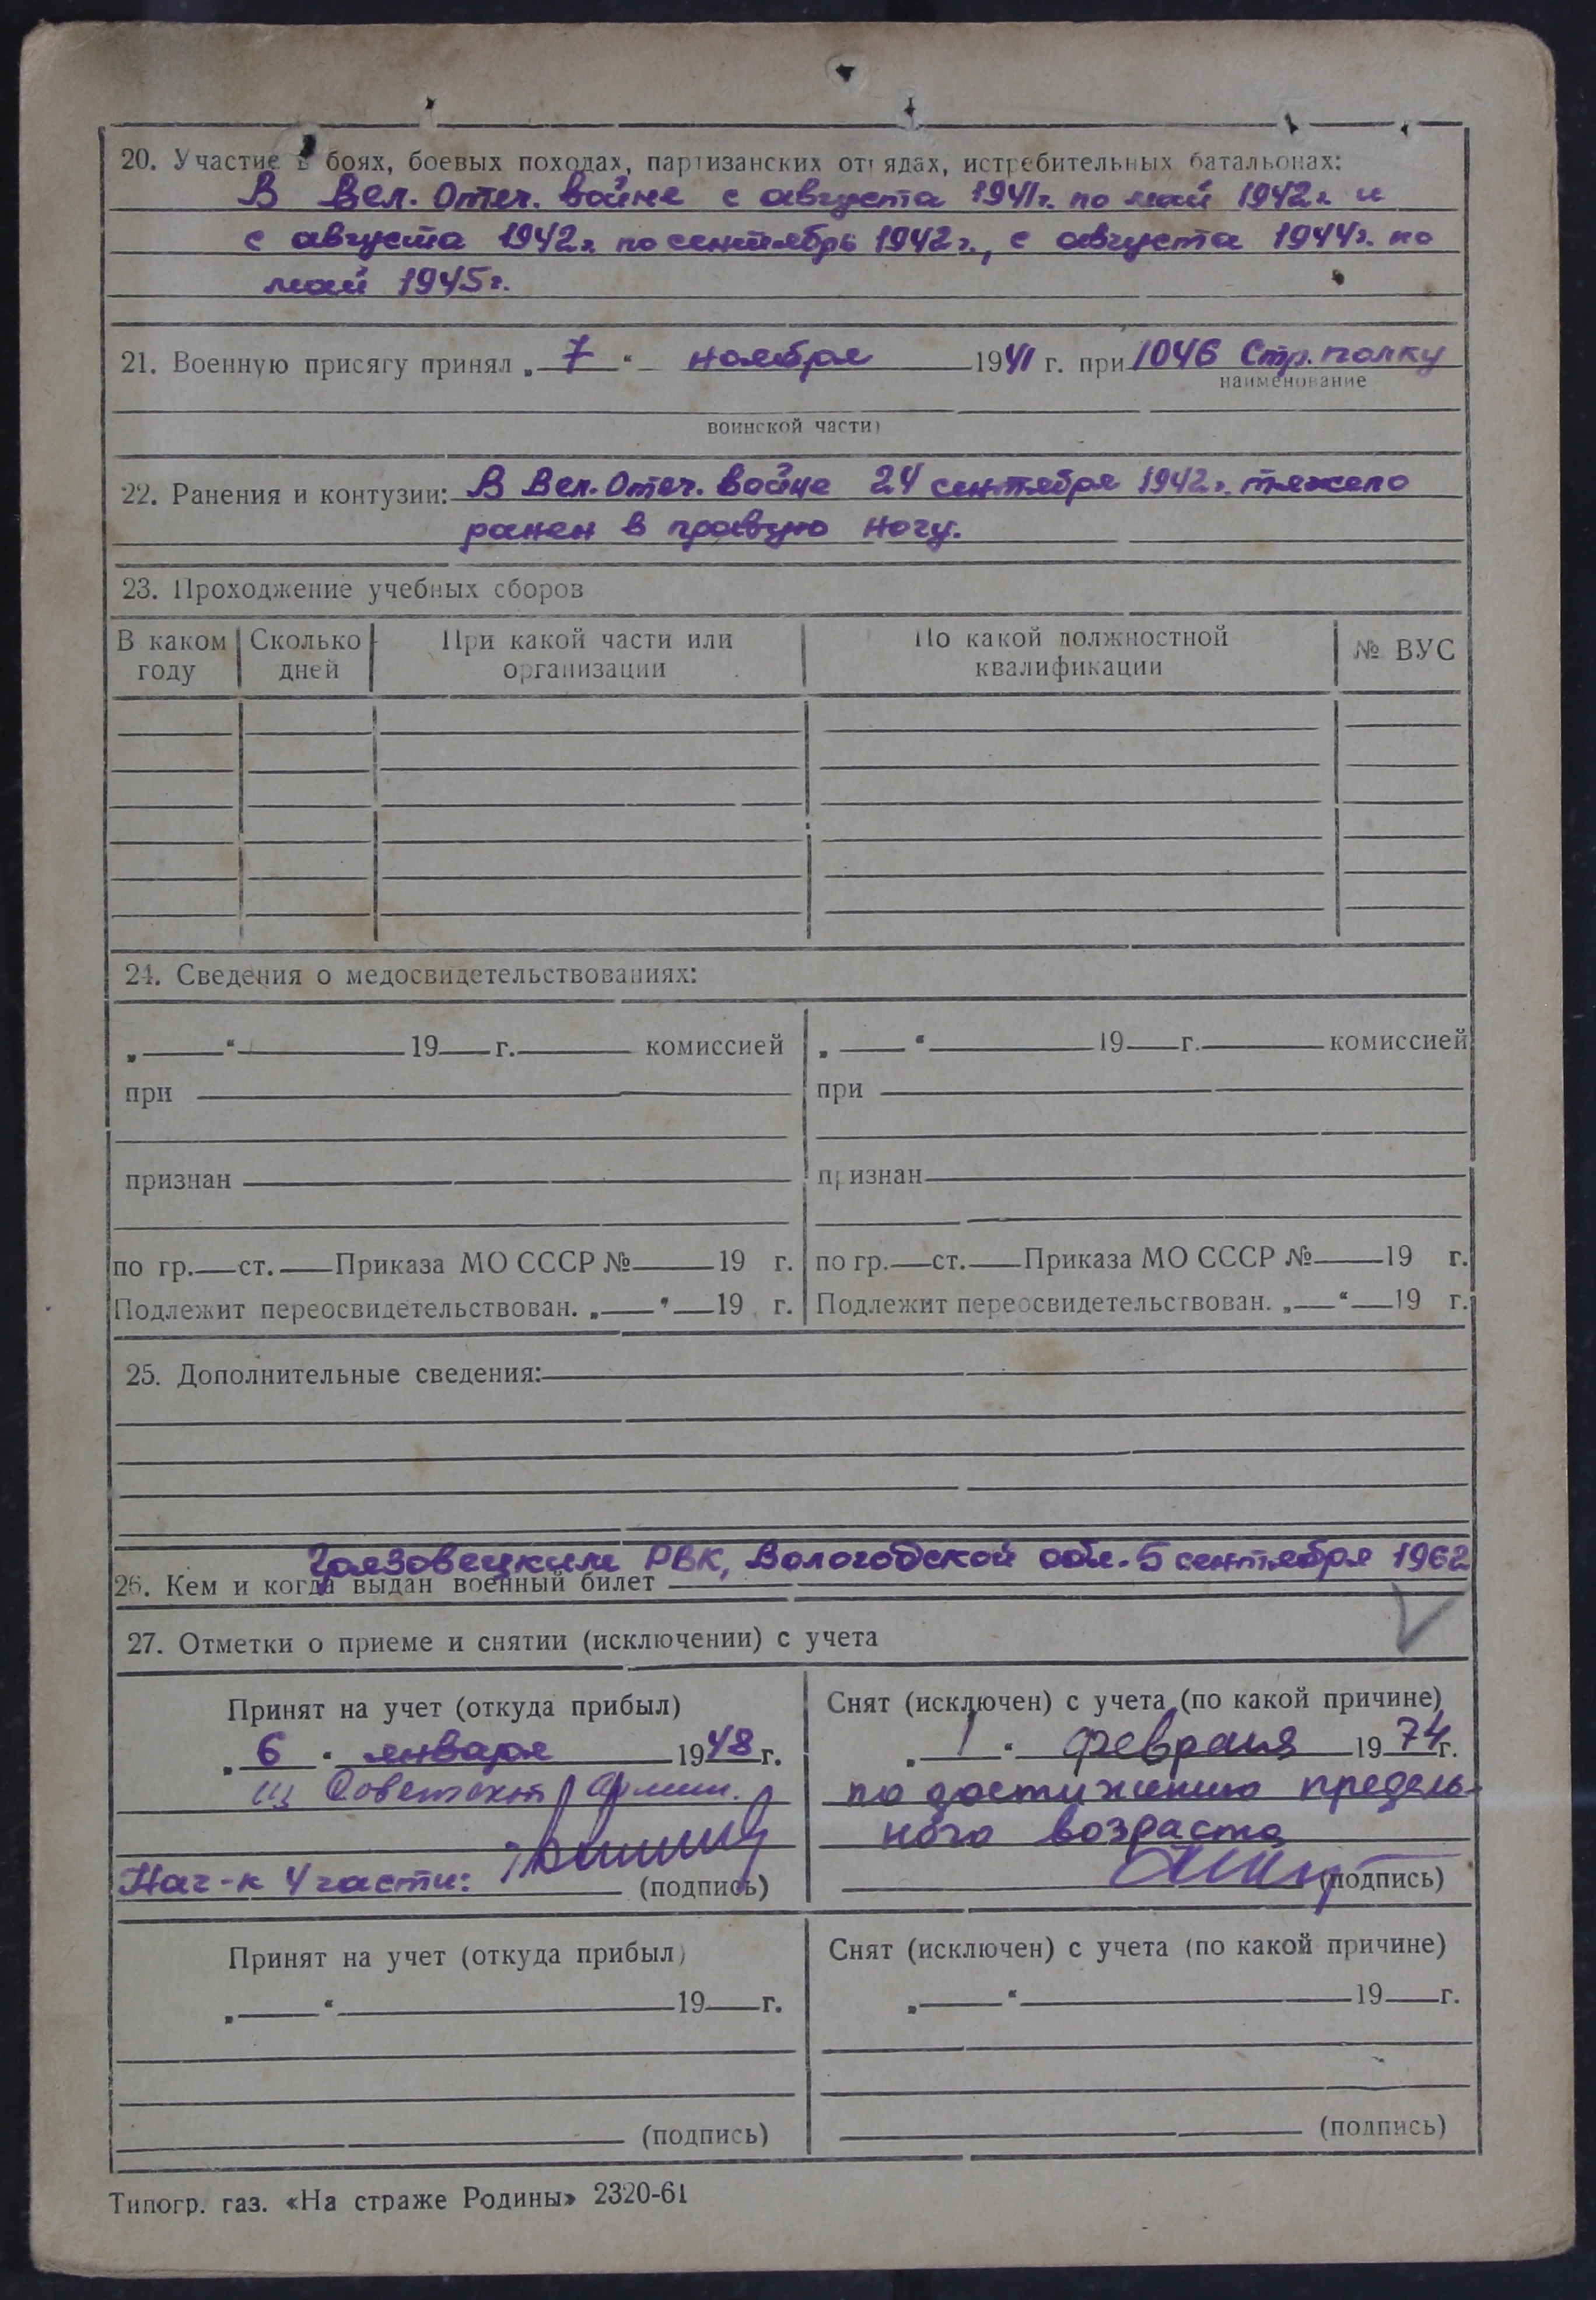 20. Участие в боях, боевых походах, партизанских отрядах, истребительных батальонах:
В Вел. Отеч. войне с августа 1941г. по май 1942г. и
с августа 1942г. по сентябрь 1942г., с августа 1944г. по
май 1945г.
21. Военную присягу принял „ 7 “ ноября 1941 г. при 1046 Стр. полку
наименование
воинской части)
22. Ранения и контузии: В Вел. Отеч. войне 24 сентября 1942г. тяжело
ранен в правую ногу.
23. Прохоџжение учебных сборов
В каком году | Сколько дней | При какой части или организации | По какой должностной квалификации | № ВУС
24. Сведения о медосвидетельствованиях:
„ “ 19 г. комиссией | „ “ 19 г. комиссией
при | при
признан | признан
по гр. ст. Приказа МО СССР № 19 г. | по гр. ст. Приказа МО СССР № 19 г.
Подлежит переосвидетельствован. „ “ 19 г. | Подлежит переосвидетельствован. „ “ 19 г.
25. Дополнительные сведения:
Грязовецким РВК, Вологодской обл. 5 сентября 1962
26. Кем и когда выдан военный билет
27. Отметки о приеме и снятии (исключении) с учета
Принят на учет (откуда прибыл) | Снят (исключен) с учета (по какой причине)
„ 6 “ января 1948 г. | „ 1 “ февраля 1974 г.
из Советской Армии. | по достижению предель-
ного возраста
Нач-к 4 части: (подпись) | (подпись)
Принят на учет (откуда прибыл) | Снят (исключен) с учета (по какой причине)
„ “ 19 г. | „ “ 19 г.
(подпись) | (подпись)
Типогр. газ. «На страже Родины» 2320-61